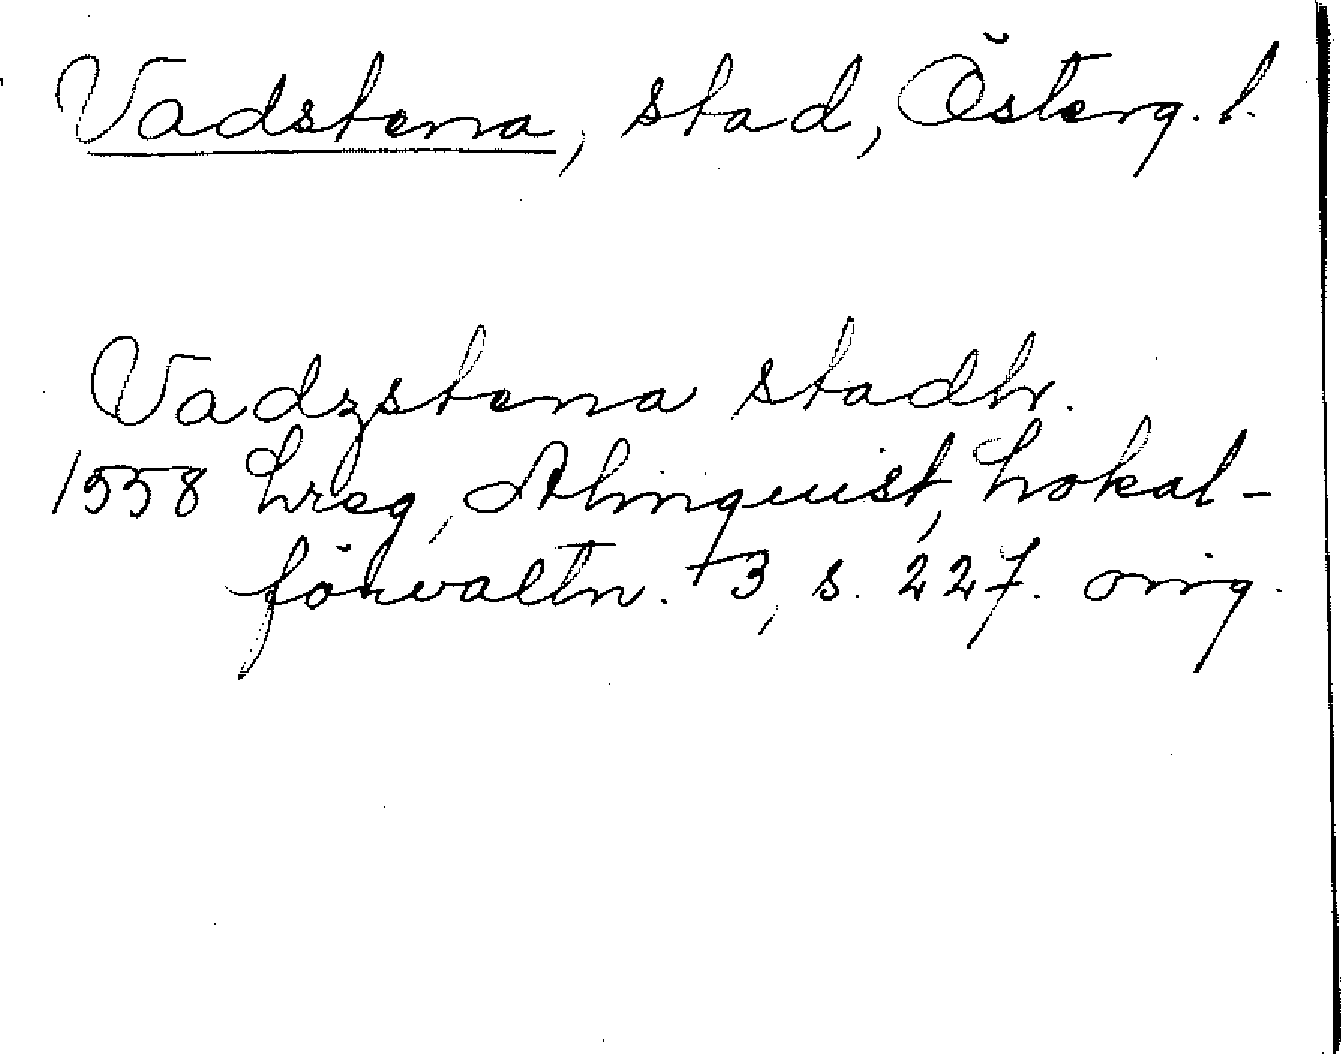 Vadstena, stad, Österg. l.
Vadzstena stadh.
1558 hreg, Almquist, Lokal-
förvaltn. 3, s. 227. orig.